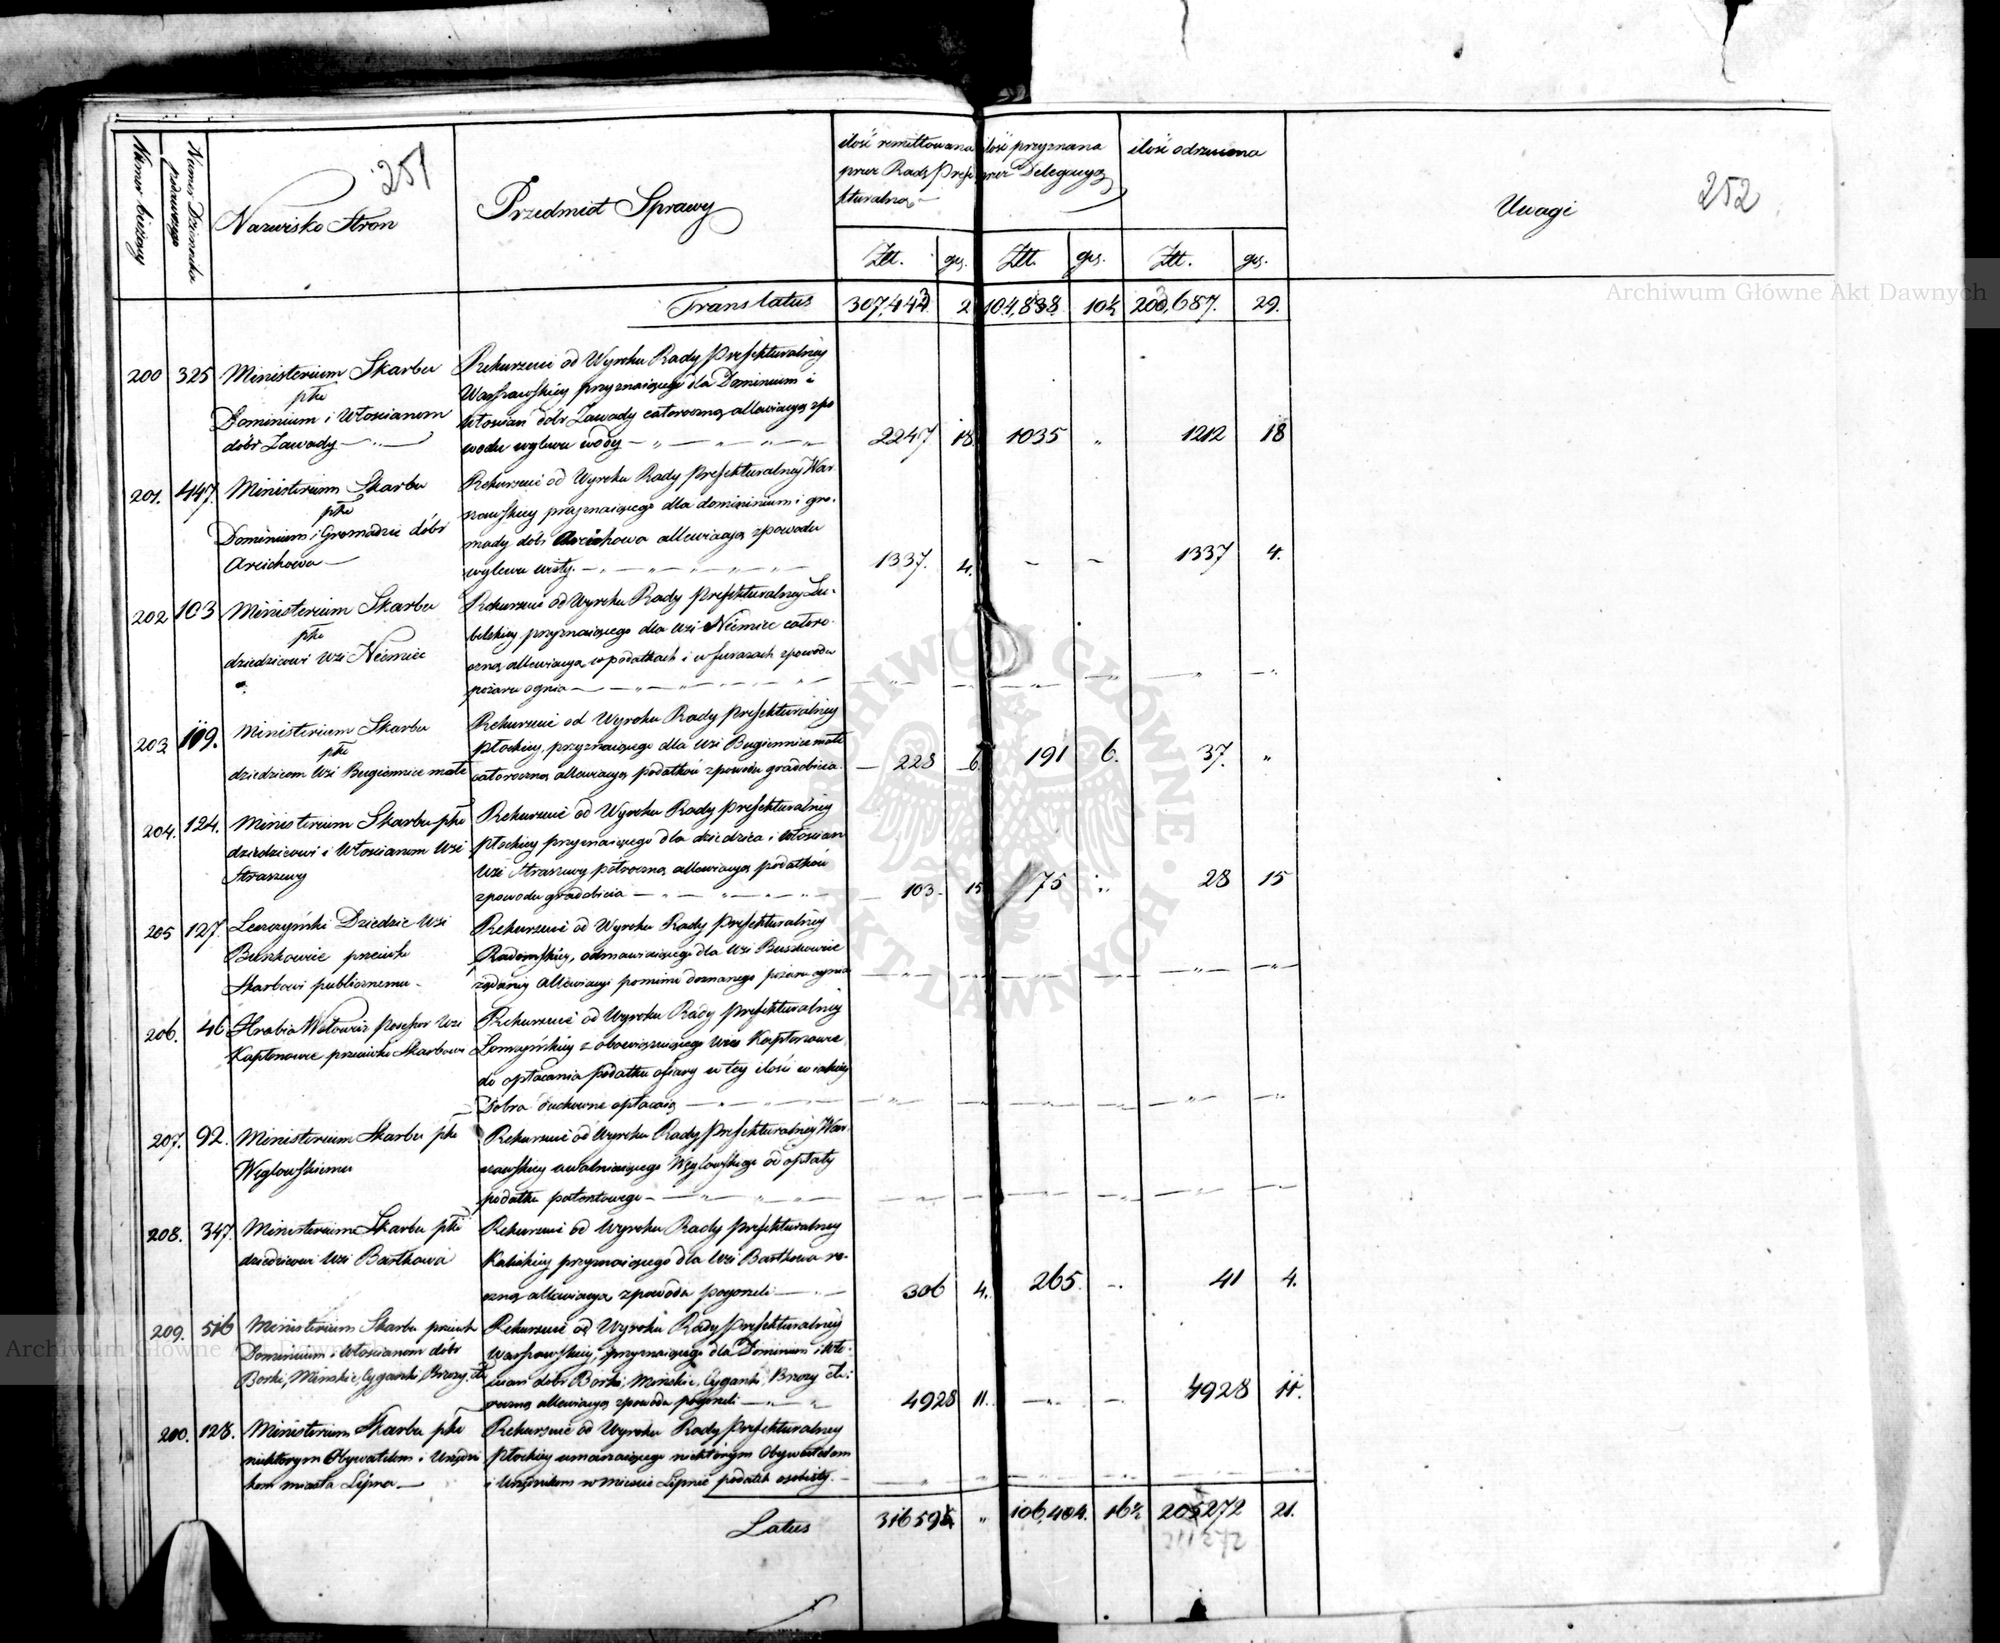 251
252
Numer bieżący
Numer Dziennika
podawczego
Nazwisko Stron
Przedmiot Sprawy
ilość remittowana
przez Radę Prefe
kturalną
ilość przyznana
przez Delegacyą
ilość odrzucona
Uwagi
Złt. gr. Złt. grs. Złt. grs.
Translatus 307,443 2 104,838 10½ 203,687. 29.
200 325 Ministerium Skarbu
pko
Dominium i Włoscianom
dóbr Zawady
Rekurzenié od Wyroku Rady Prefekturalnéy
Warszawskiéy przyznaiącego dla Dominium i
Włoscian dóbr Zawady całoroczną allewiacyą zpo
wodu wylewu wody 2247 18 1035 „ 1212 18
201. 447. Ministerium Skarbu
pko
Dominium i Gromadzie dóbr
Arcichowa
Rekurzenié od Wyroku Rady Prefekturalnéy War
szawskiéy przyznaiącego dla dominium i gro-
mady dóbr Arcichowa allewiacyą zpowodu
wylewu wisły. 1337. 4. – – 1337 4.
202 103 Ministerium Skarbu
pko
dziedzicowi Wsi Niemiec
Rekurzenié od Wyroku Rady Prefekturalnéy Lu-
belskiéy przyznaiącego dla Wsi Niemiec całoro-
czną allewiacyą w podatkach i w furazach zpowodu
pożaru ognia
203. 109. Ministerium Skarbu
pko
dziedzicom Wsi Bugiennice małe
Rekurzenié od Wyroku Rady Prefekturalnéy
Płockiéy, przyznaiącego dla Wsi Bugiennice małe
całoroczną allewiacyą podatków zpowodu gradobicia. 228 6. 191 6. 37. „
204. 124. Ministerium Skarbu pko
dziedzicowi i Włoscianom Wsi
Straszewy
Rekurzenié od Wyroku Rady Prefekturalnéy
Płockiéy przyznaiącego dla dziedzica i Włoscian
Wsi Straszewy półroczną allewiacyą podatków
zpowodu gradobicia 103. 15 75 „ 28 15
205 127. Leszczyński Dziedzic Wsi
Buszkowice przeciwko
Skarbowi publicznemu
Rekurzenié od Wyroku Rady Prefekturalnéy
Radomskiéy, odmawiaiącego dla Wsi Buszkowice
żądaney allewiacyi pomimo doznanego pożaru ognia
206. 46 Hrabia Wołowicz Possessor Wsi
Kaptonowce przeciwko Skarbowi
Rekurzenié od Wyroku Rady Prefekturalnéy
Łomżyńskiéy zobowiązuiącego Wieś Kaptonowce
do opłacania podatku ofiary w tey ilości w iakiéy
Dobra duchowne opłacaią
207. 92. Ministerium Skarbu pko
Węglowskiemu
Rekurzenié od Wyroku Rady Prefekturalnéy War-
szawskiey uwalniaiącego Węglowskiego od opłaty
podatku patentowego
208. 347. Ministerium Skarbu pko
dziedzicowi Wsi Bartkowa
Rekurzenié od Wyroku Rady Prefekturalnéy
Kaliskiéy przyznaiącego dla Wsi Bartkowa ro-
czną allewiacyą zpowodu pogorzeli 306 4. 265. – 41 4.
209. 516 Ministerium Skarbu przeciwko
Dominium i Włoscianom dóbr
Borki, Minskie, Cyganki, Brzozy. etc
Rekurzenié od Wyroku Rady Prefekturalnéy
Warszawskiéy, przyznaiącego dla Dominium i Wło-
scian dóbr Borki, Minskie, Cyganki, Brzozy etc:
roczną allewiacyą zpowodu pogorzeli 4928 11. – – 4928 11.
210. 128. Ministerium Skarbu pko
niektorym Obywatelom i Urzędni
kom miasta Lipna
Rekurzenié od Wyroku Rady Prefekturalnéy
Płockiéy umarzaiącego niektórym Obywatelom
i Urzędnikom w Mieście Lipnie podatek osobisty.
Latus 316594 „ 106,404. 16½ 205272 21.
Archiwum Główne Akt Dawnych
ARCHIWUM GŁÓWNE AKT DAWNYCH
Archiwum Główne Akt Dawnych